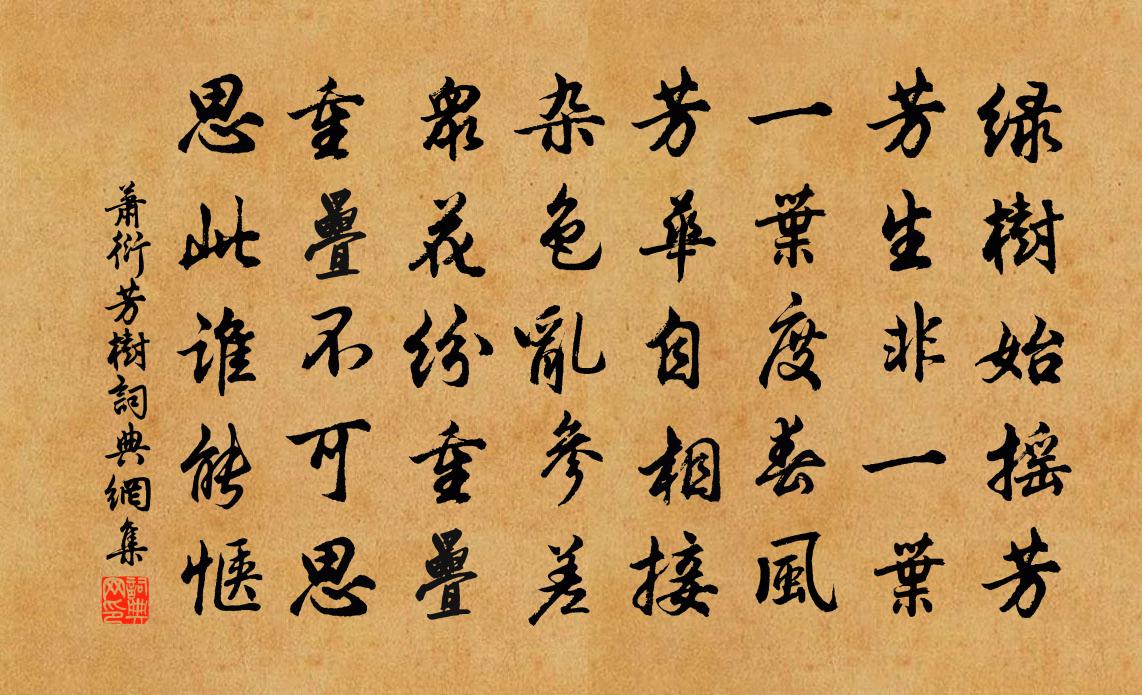 绿樹始摇芳
芳生非一葉
一葉度春風
芳華自相接
杂色亂參差
衆花紛重疊
重疊不可思
思此誰能愜
萧衍芳樹詞典網集
詞典网印